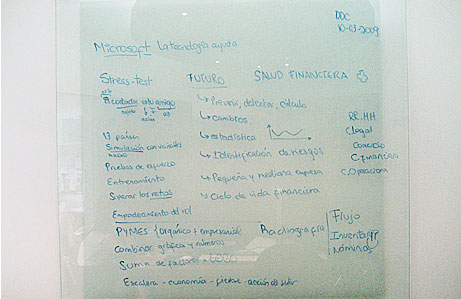 DDC
10-03-2009
Microsoft La tecnología ayuda
Stress-test FUTURO SALUD FINANCIERA
tu amigo
Prevenir, detectar, cálculo
Cambios
estadística
Identificación de riesgos
Pequeña y mediana empresa
Ciclo de vida financiera
RR.HH
C legal
Comercio
C. financiero
C. Operaciones
13 países
Simulación con variables
macro
Pruebas de esfuerzo
Entrenamiento
Superar los retos
Empoderamiento del
PYMES Orgánico + empresarial Radiografía
Combinar gráficos y números
Suma de factores
Escalera - economía -
Flujo
Inventarios
Nóminas